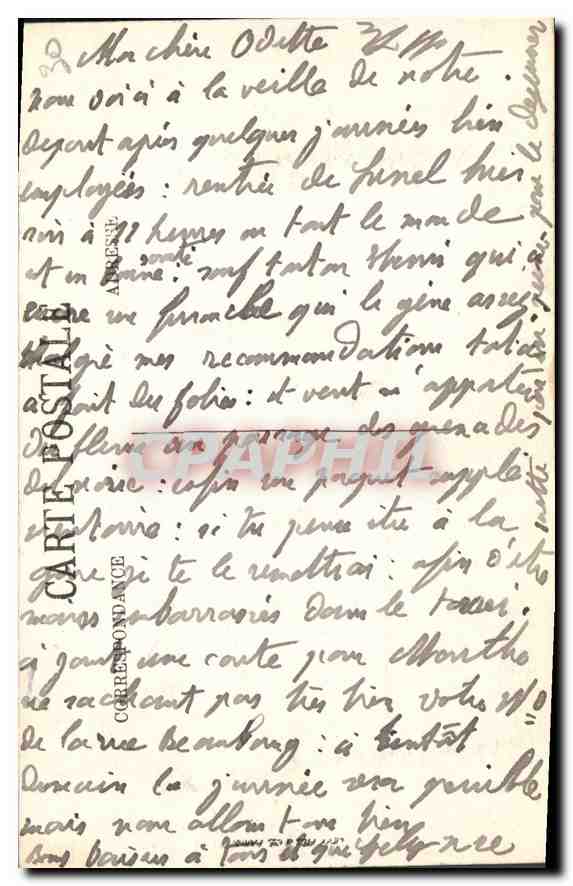 30
Ma chère Odette
nous voici à la veille de notre
depart après quelques journées bien
employées : rentrée de Lunel hier
soir à 12 heures ou tout le monde
est en bonne santé : sauf tonton Henri qui a
encore un furoncle qui le gêne assez
Malgré mes recommandations tatie
a fait des folies : et veut m'apporter
des fleurs des grenades
de : enfin un paquet supplé
mentaire : si tu peux être à la
gare je te le remettrai : afin d'être
moins embarrassés dans le taxi.
ci joint une carte pour Marthe
ne sachant pas très bien votre No
de la rue Beaubourg : à bientôt
Demain la journée sera penible
mais nous allons tous bien
Bons baisers à tous
pour le dejeuner
CARTE POSTALE
CORRESPONDANCE
ADRESSE
CPAPHIL